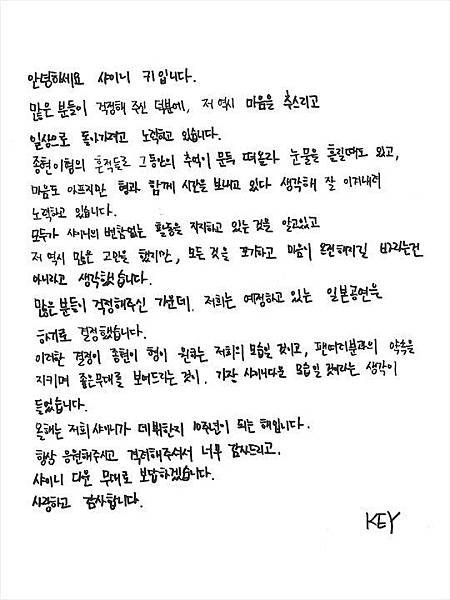 안녕하세요 샤이니 키입니다.
많은 분들이 걱정해 주신 덕분에, 저 역시 마음을 추스리고
일상으로 돌아가려고 노력하고 있습니다.
종현이형의 흔적들로 그동안의 추억이 문득 떠올라 눈물을 흘릴때도 있고,
마음도 아프지만 형과 함께 시간을 보내고 있다 생각해 잘 이겨내려
노력하고 있습니다.
모두가 샤이니의 변함없는 활동을 지지하고 있는 것을 알고있고
저 역시 많은 고민을 했지만, 모든 것을 포기하고 마음이 온전해지길 바라는건
아니라고 생각했습니다.
많은 분들이 걱정해주신 가운데. 저희는 예정하고 있는 일본공연을
하기로 결정했습니다.
이러한 결정이 종현이 형이 원하는 저희의 모습일 것이고, 팬여러분과의 약속을
지키며 좋은무대를 보여드리는것이. 가장 샤이니다운 모습일 것이라는 생각이
들었습니다.
올해는 저희 샤이니가 데뷔한지 10주년이 되는 해입니다.
항상 응원해주시고 격려해주셔서 너무 감사드리고.
샤이니 다운 무대로 보답하겠습니다.
사랑하고 감사합니다.
KEY